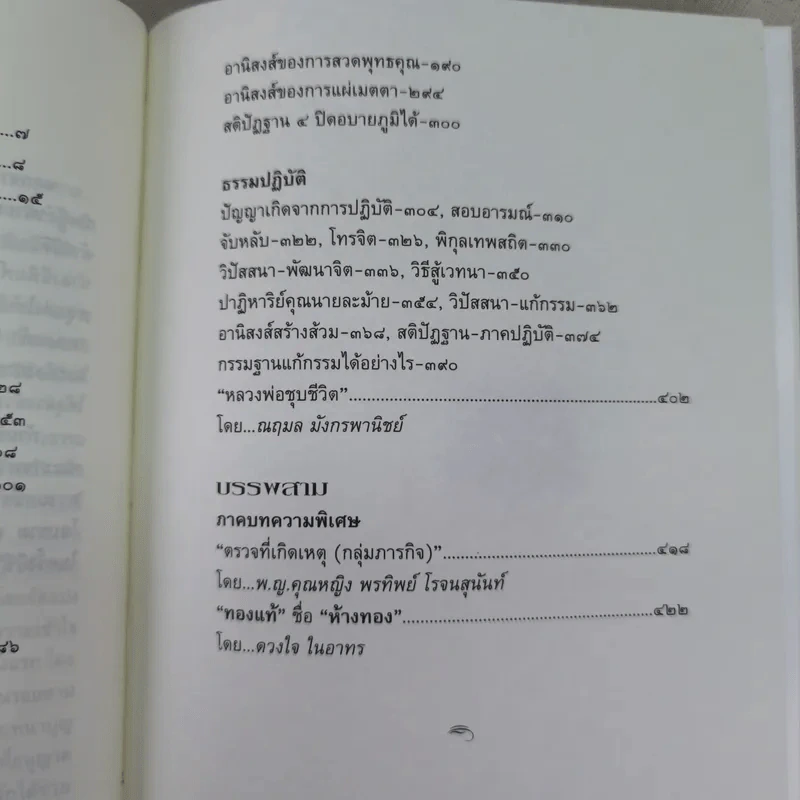 ...๗
...๘
...๑๕
๒๘
๕๓
๐๘
๐๑
๘๖
อานิสงส์ของการสวดพุทธคุณ-๑๙๐
อานิสงส์ของการแผ่เมตตา-๒๙๔
สติปัฏฐาน ๔ ปิดอบายภูมิได้-๓๐๐
ธรรมปฏิบัติ
ปัญญาเกิดจากการปฏิบัติ-๓๐๔, สอบอารมณ์-๓๑๐
จับหลับ-๓๒๒, โทรจิต-๓๒๖, พิกุลเทพสถิต-๓๓๐
วิปัสสนา-พัฒนาจิต-๓๓๖, วิธีสู้เวทนา-๓๕๐
ปาฏิหาริย์คุณนายละม้าย-๓๕๔, วิปัสสนา-แก้กรรม-๓๖๒
อานิสงส์สร้างส้วม-๓๖๘, สติปัฏฐาน-ภาคปฏิบัติ-๓๗๔
กรรมฐานแก้กรรมได้อย่างไร-๓๙๐
“หลวงพ่อชุบชีวิต”...........................................................๔๐๒
โดย...ณฤมล มังกรพานิชย์
บรรพสาม
ภาคบทความพิเศษ
“ตรวจที่เกิดเหตุ (กลุ่มภารกิจ)”..........................................๔๑๘
โดย...พ.ญ.คุณหญิง พรทิพย์ โรจนสุนันท์
“ทองแท้” ชื่อ “ห้างทอง”..................................................๔๒๒
โดย...ดวงใจ ในอาทร